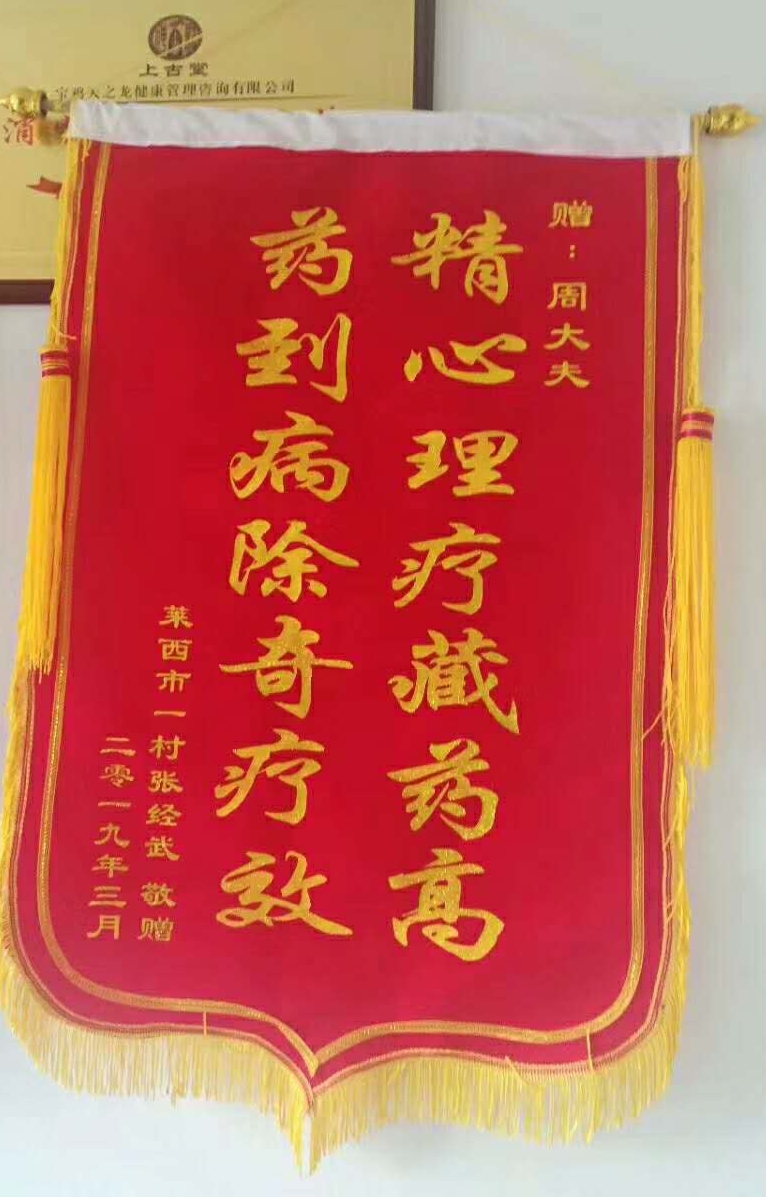 上古堂
宝鸡天之龙健康管理咨询有限公司
消
赠：周大夫
精心理疗藏药高
药到病除奇疗效
莱西市一村张经武 敬赠
二零一九年三月